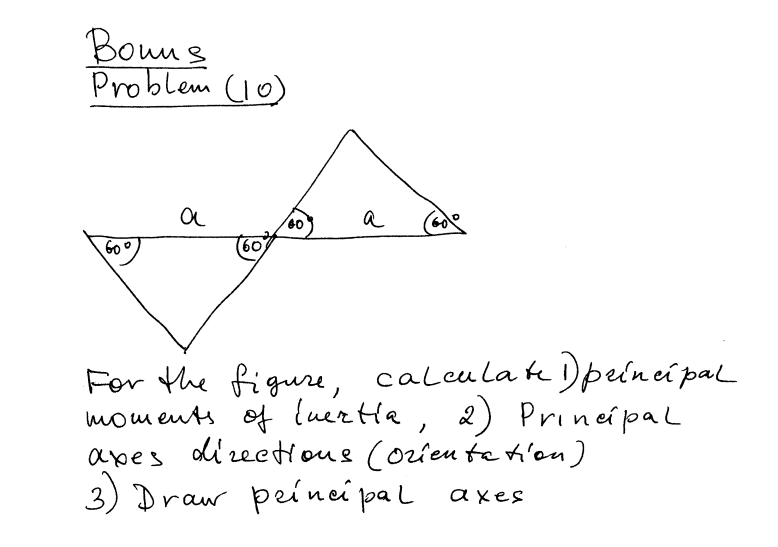 Bonus
Problem (10)
a
a
60°
60°
60°
60°
For the figure, calculate 1) principal
moments of inertia, 2) Principal
axes directions (orientation)
3) Draw principal axes